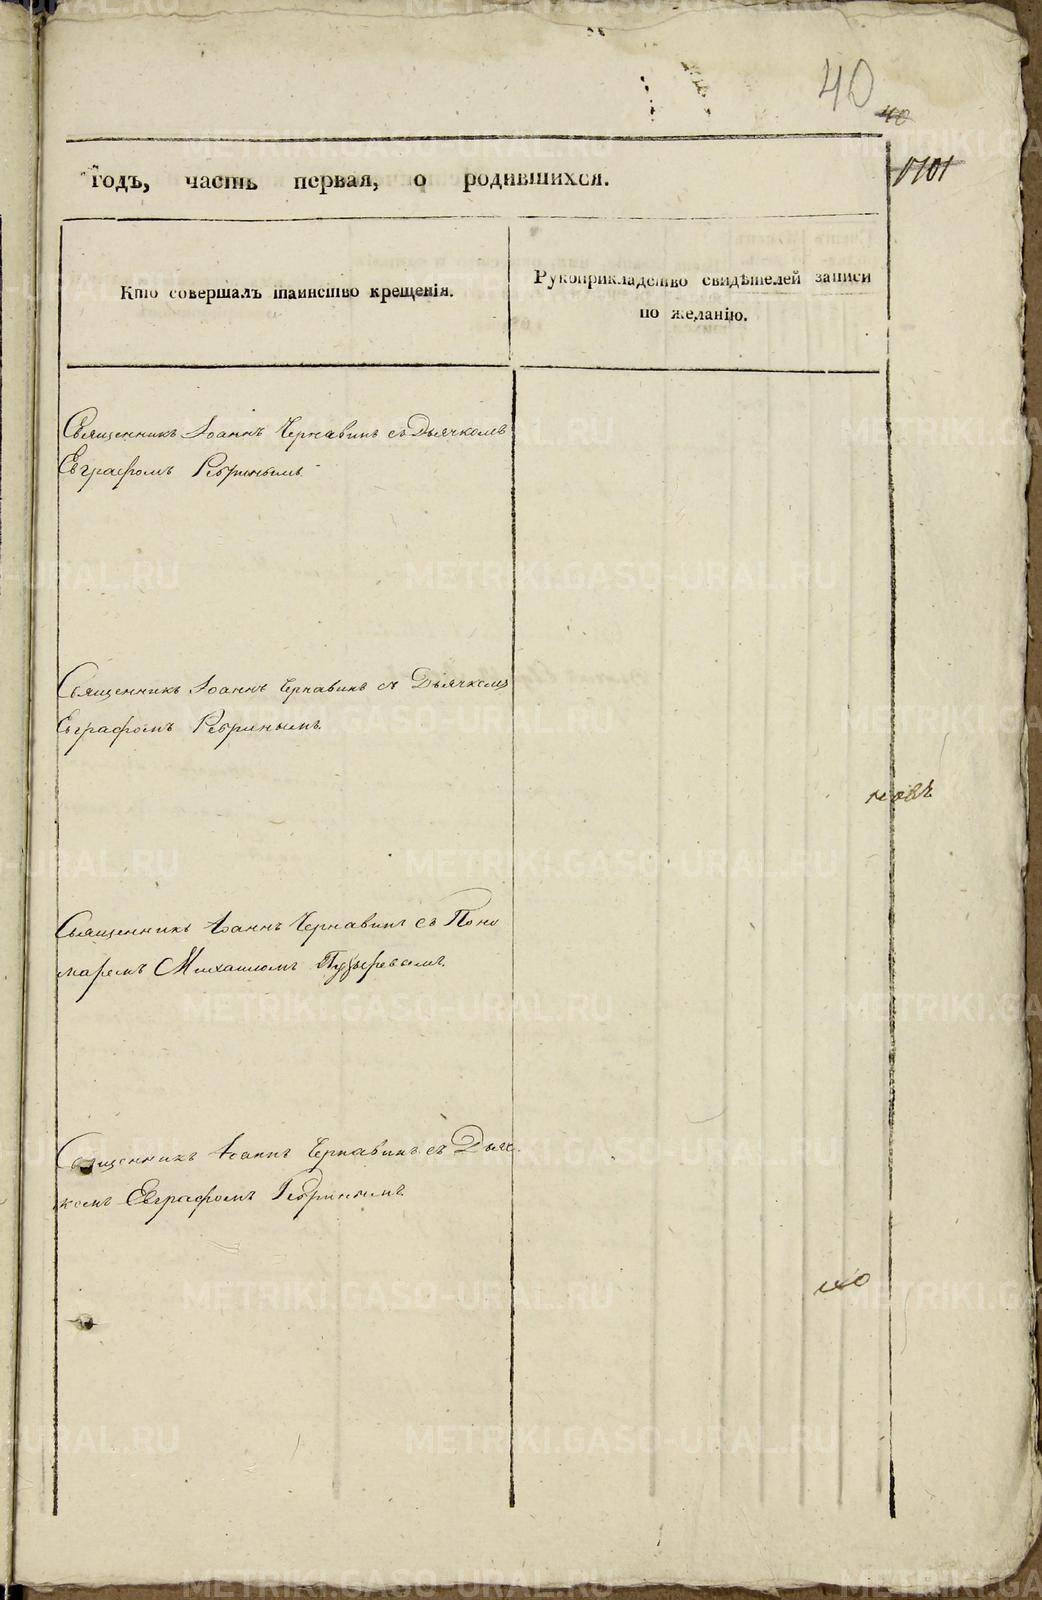 40
40
годъ, часть первая, о родившихся.
Кто совершалъ таинство крещенія.
Рукоприкладство свидѣтелей записи
по желанію.
Священникъ Іоаннъ Чернавинъ съ Дьячкомъ
Евграфомъ Ребринымъ.
Священникъ Іоаннъ Чернавинъ съ Дьячкомъ
Евграфомъ Ребринымъ.
Священникъ Іоаннъ Чернавинъ съ Поно
маремъ Михаиломъ Пузыревымъ.
Священникъ Іоаннъ Чернавинъ съ Дьяч
комъ Евграфомъ Ребринымъ.
METRIKI.GASO-URAL.RU